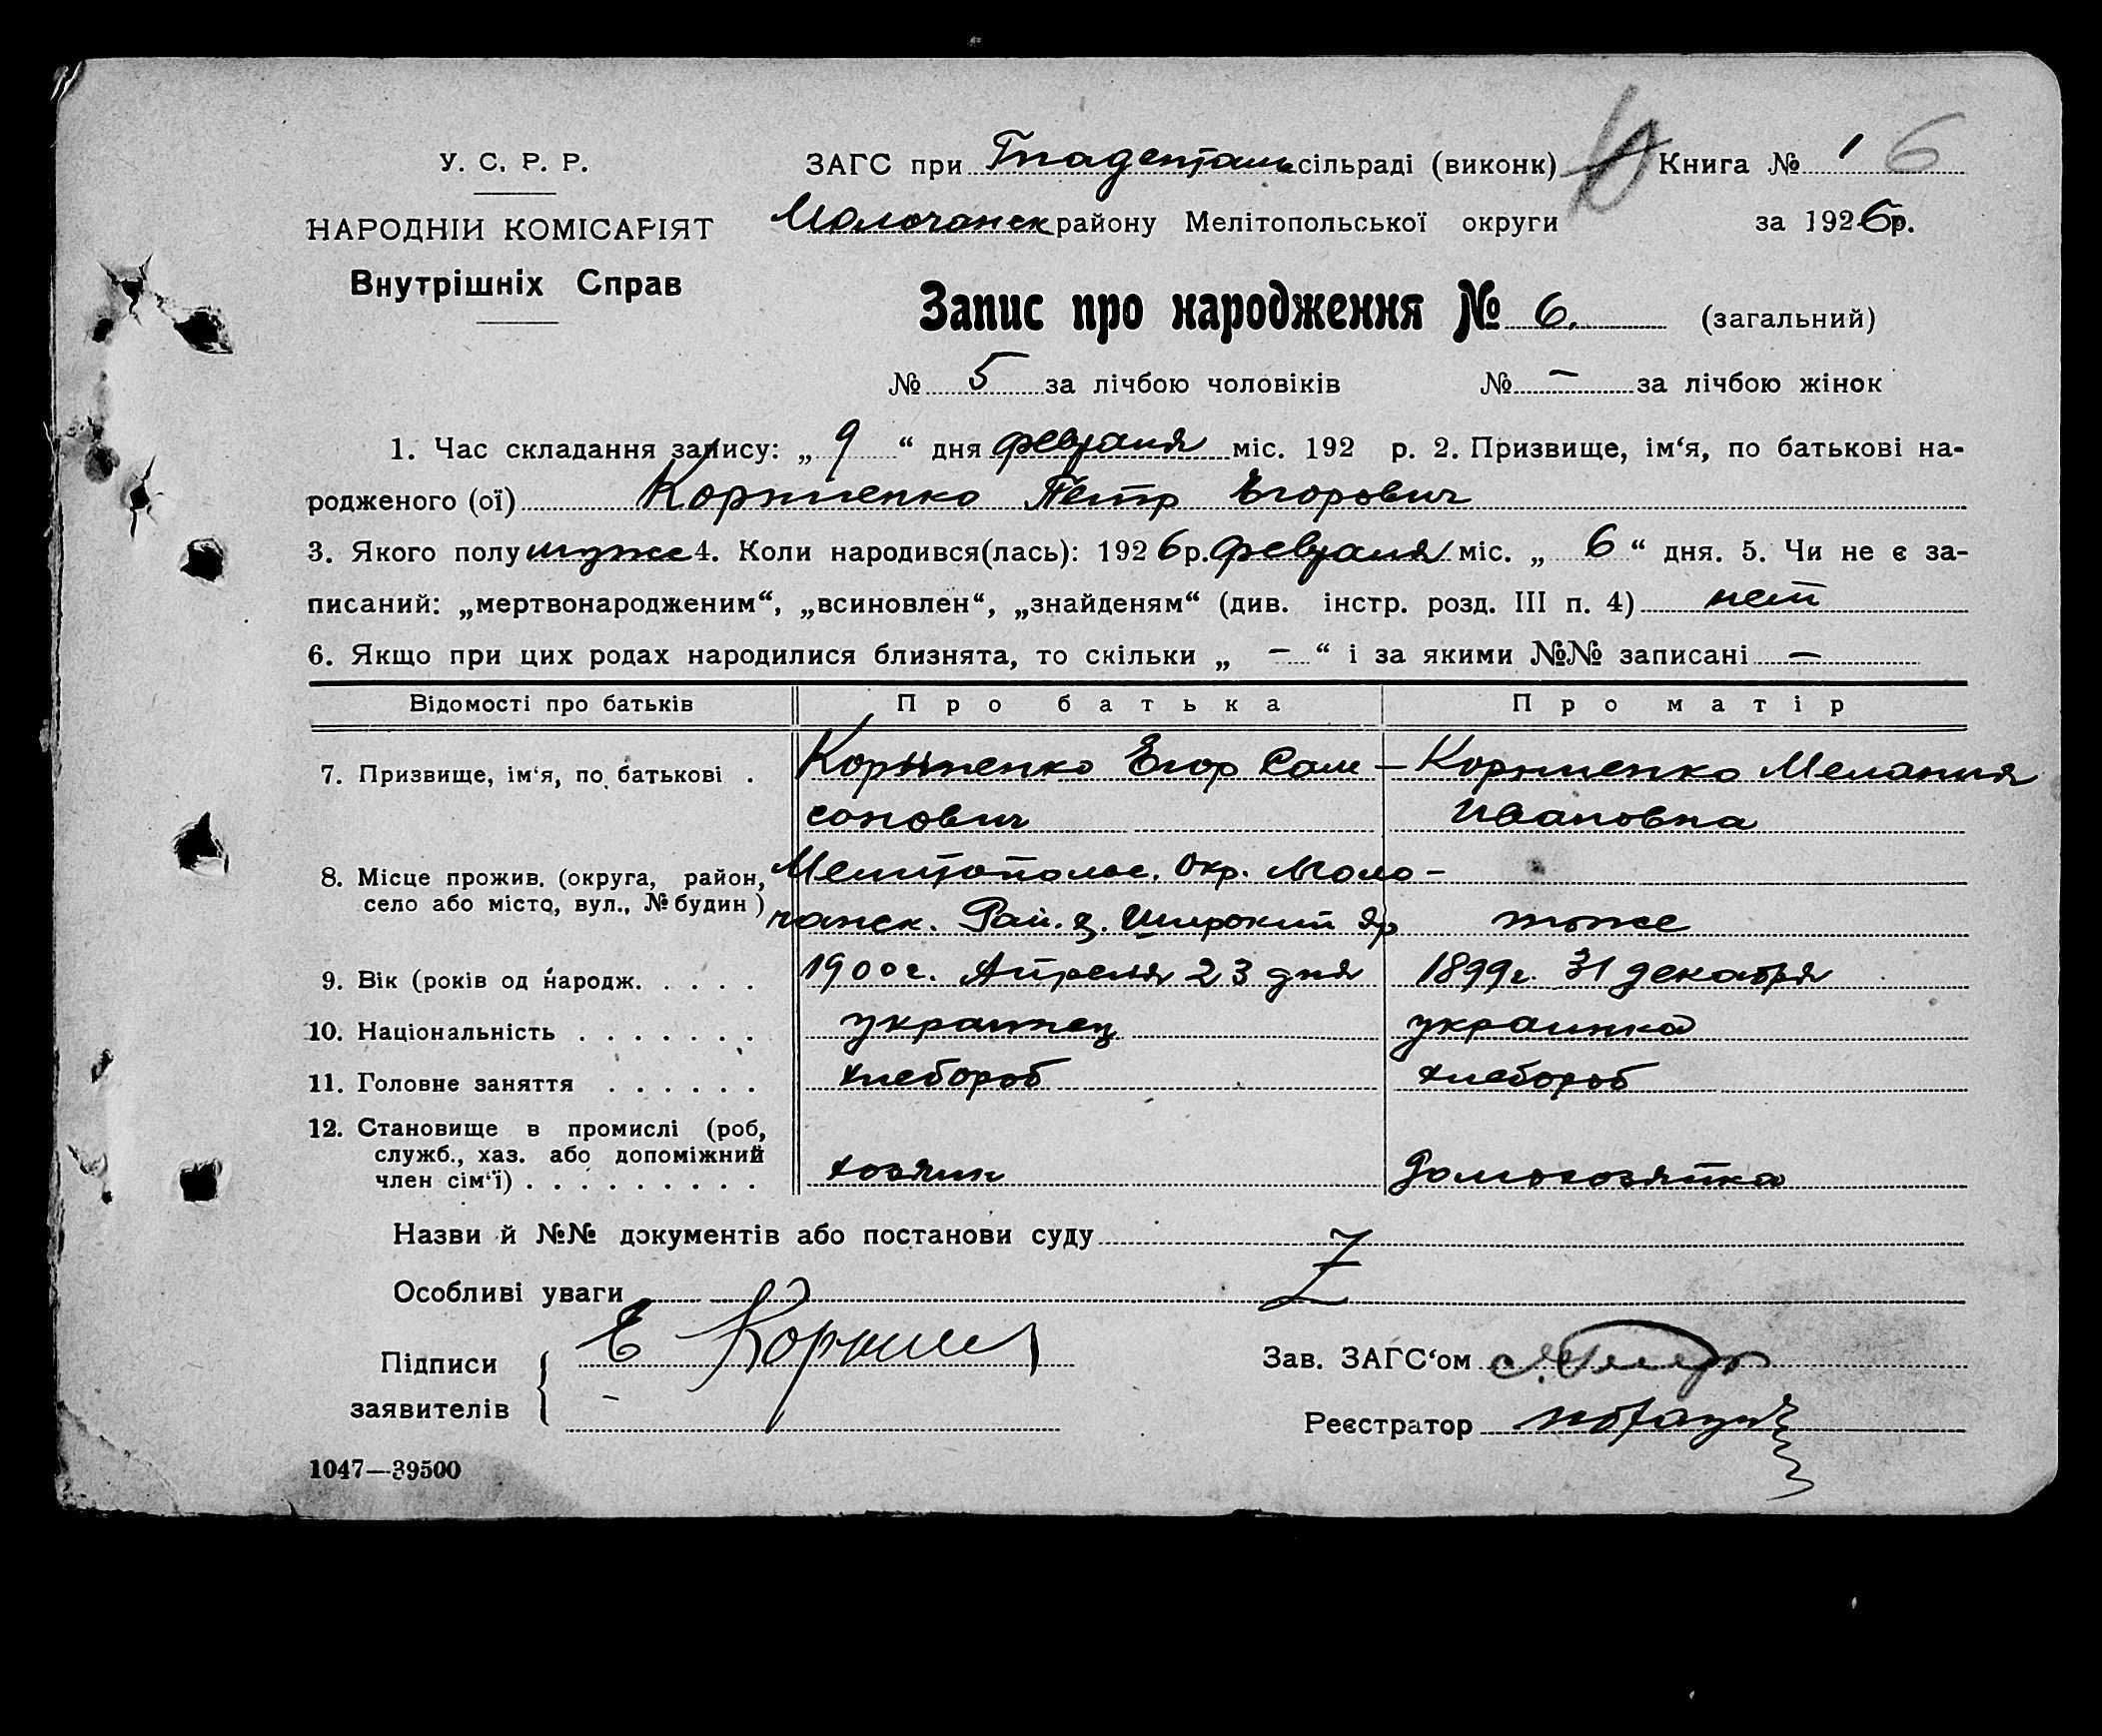 У. С. Р. Р.
НАРОДНІЙ КОМІСАРІЯТ
Внутрішніх Справ
ЗАГС при Гнаденталь сільраді (виконк) Книга № 1 6
Молочанск району Мелітопольської округи за 1926 р.
Запис про народження № 6. (загальний)
№ 5 за лічбою чоловіків № — за лічбою жінок
1. Час складання запису: „ 9 “ дня февраля міс. 192 р. 2. Призвище, ім‘я, по батькові на-
родженого (ої) Корниенко Петр Егорович
3. Якого полу мужс 4. Коли народився(лась): 1926 р. февраля міс. „ 6 “ дня. 5. Чи не є за-
писаний: „мертвонародженим“, „всиновлен“, „знайденям“ (див. інстр. розд. III п. 4) нет
6. Якщо при цих родах народилися близнята, то скільки „ — “ і за якими №№ записані —
Відомості про батьків Про батька Про матір
7. Призвище, ім‘я, по батькові . Корниенко Егор Сам- Корниенко Мелания
сонович Ивановна
8. Місце прожив. (округа, район, Мелитопольс. Окр. Моло-
село або місто, вул., № будин ) чанск. Рай. Широкий Яр тоже
9. Вік (років од народж. . . . . 1900 г. Апреля 23 дня 1899 г. 31 декабря
10. Національність . . . . . . . украинец украинка
11. Головне заняття . . . . . . хлебороб хлебороб
12. Становище в промислі (роб,
служб., хаз. або допоміжний
член сім‘ї) . . . . . . . . . хозяин домохозяйка
Назви й №№ документів або постанови суду
Особливі уваги
Підписи Е Корниен
заявителів —
Зав. ЗАГС‘ом
Реєстратор
1047—39500